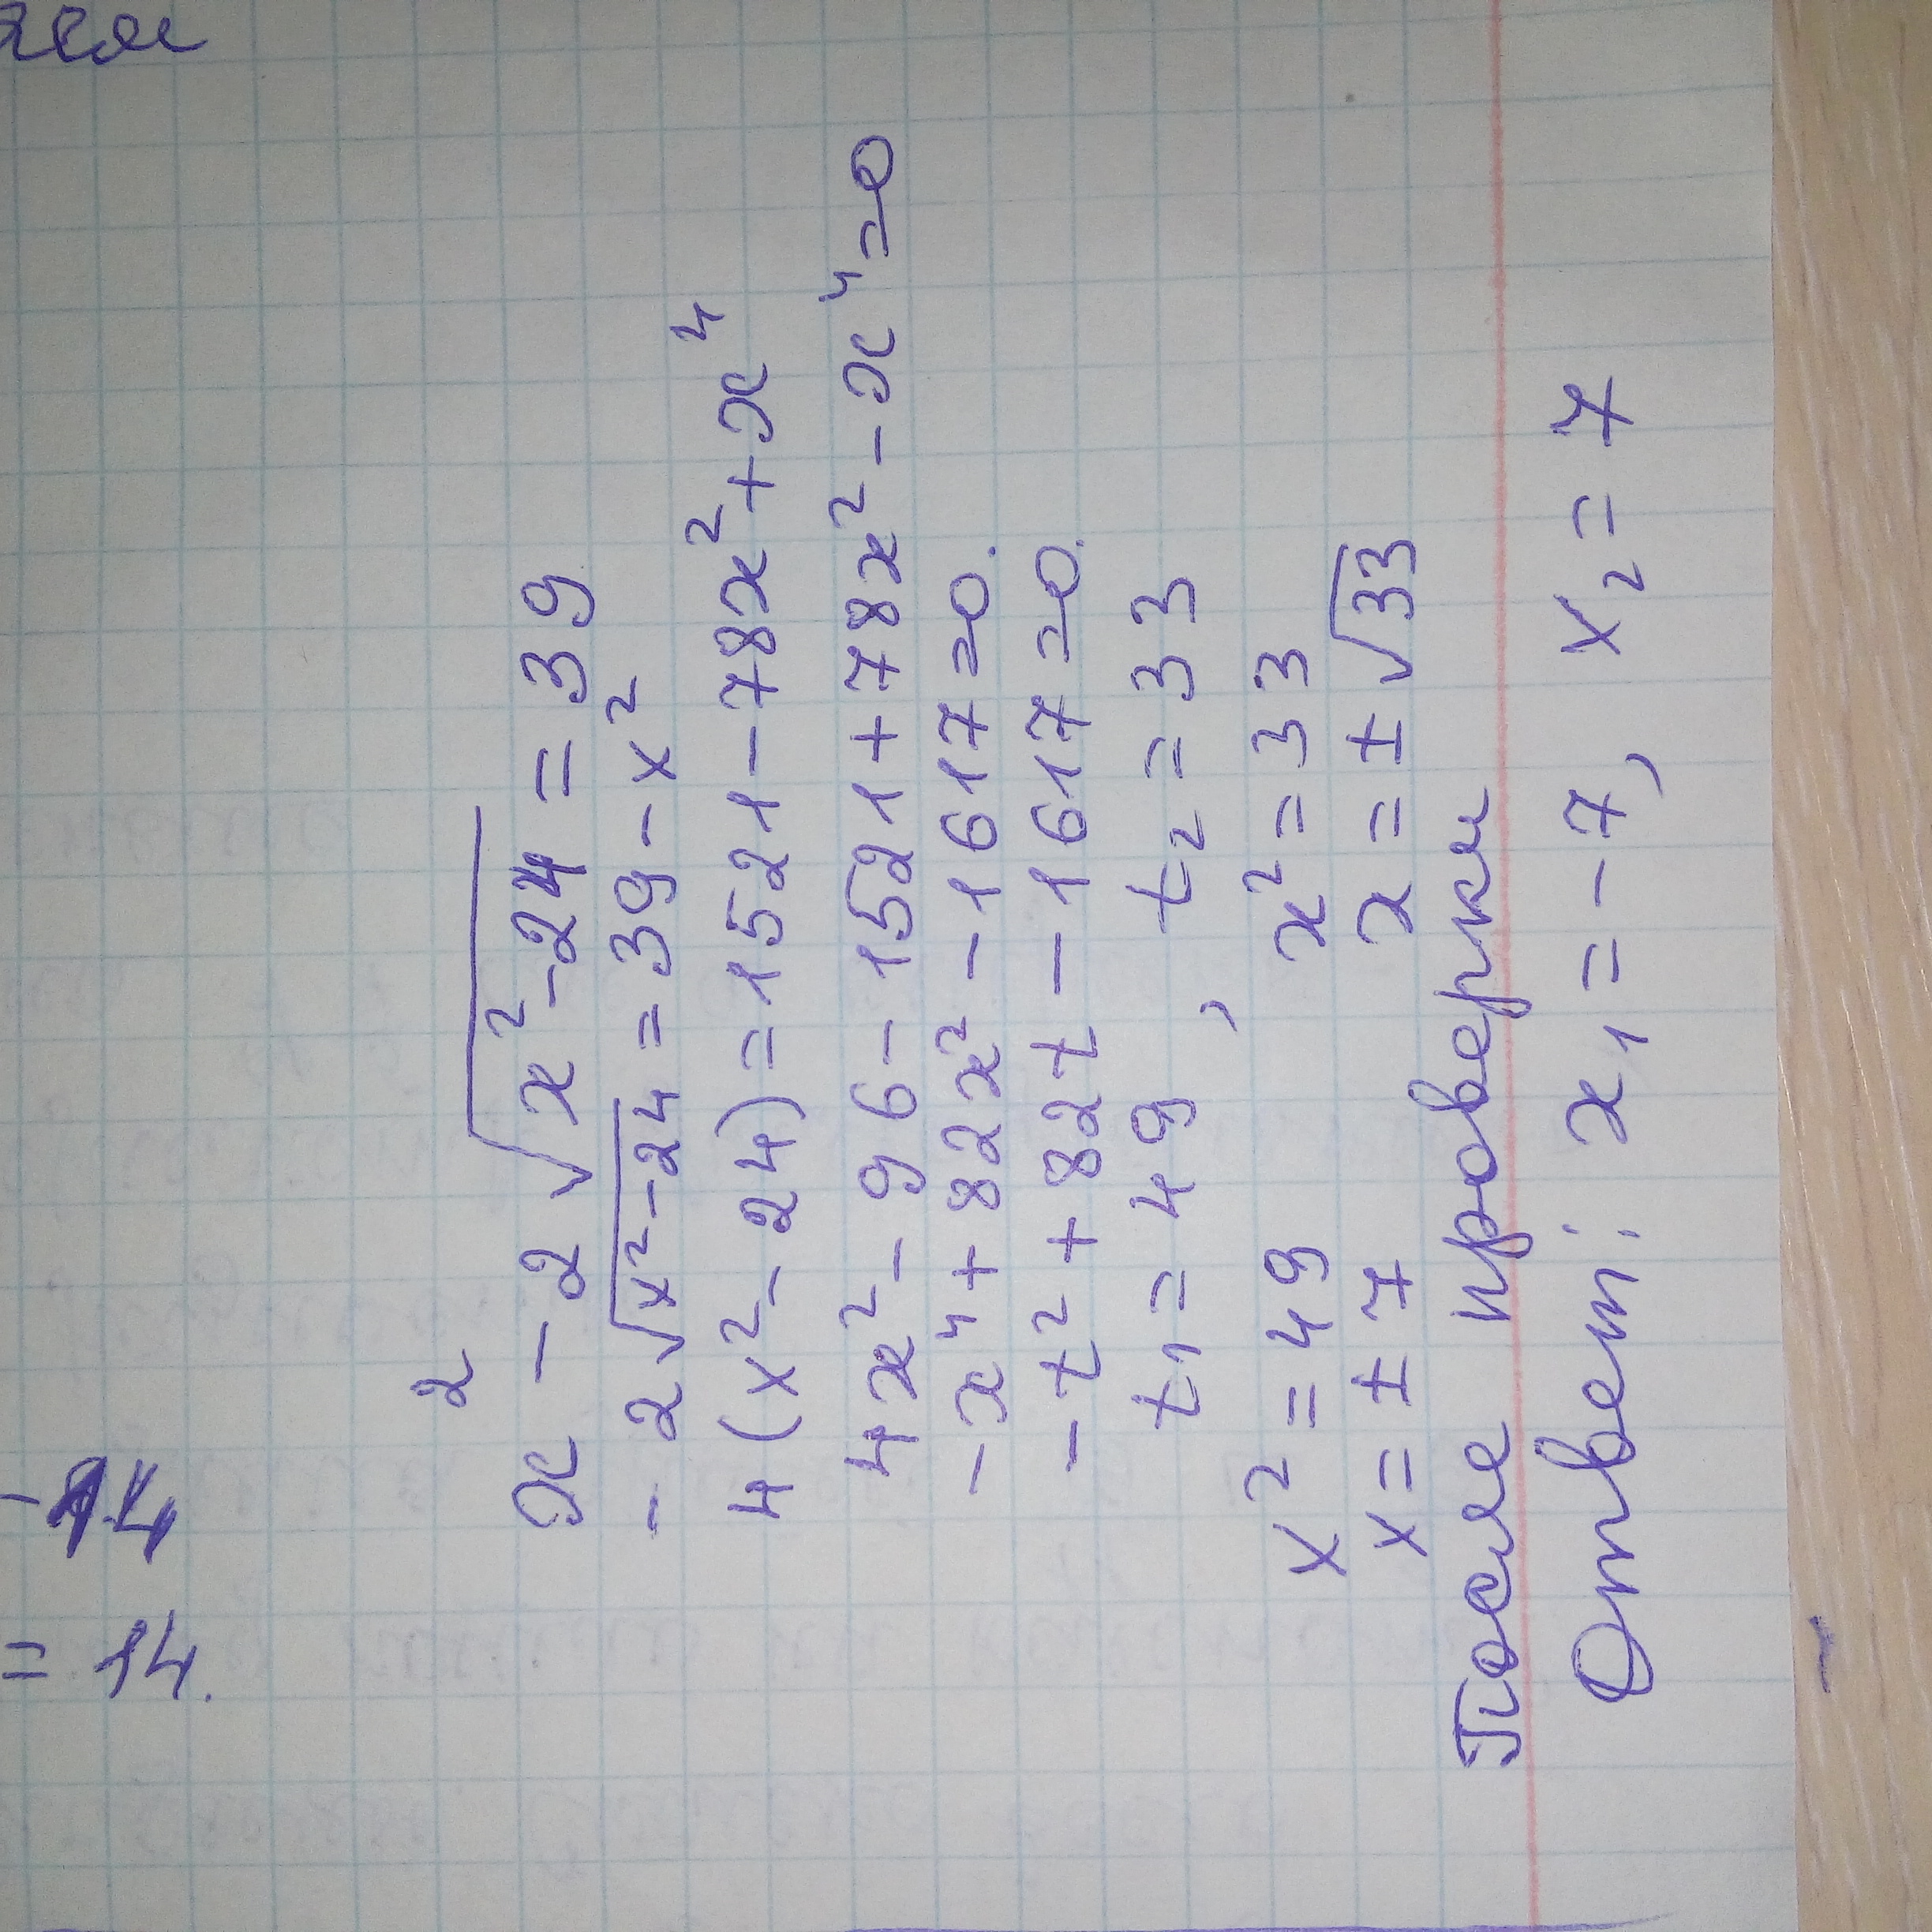 = 14
= 14.
x² - 2√x²-24 = 39
- 2√x²-24 = 39 - x²
4(x² - 24) = 1521 - 78x² + x⁴
4x² - 96 - 1521 + 78x² - x⁴ = 0
-x⁴ + 82x² - 1617 = 0.
-t² + 82t - 1617 = 0.
t₁ = 49, t₂ = 33
x² = 49 x² = 33
x = ± 7 x = ± √33
После проверки
Ответ: x₁ = -7, x₂ = 7